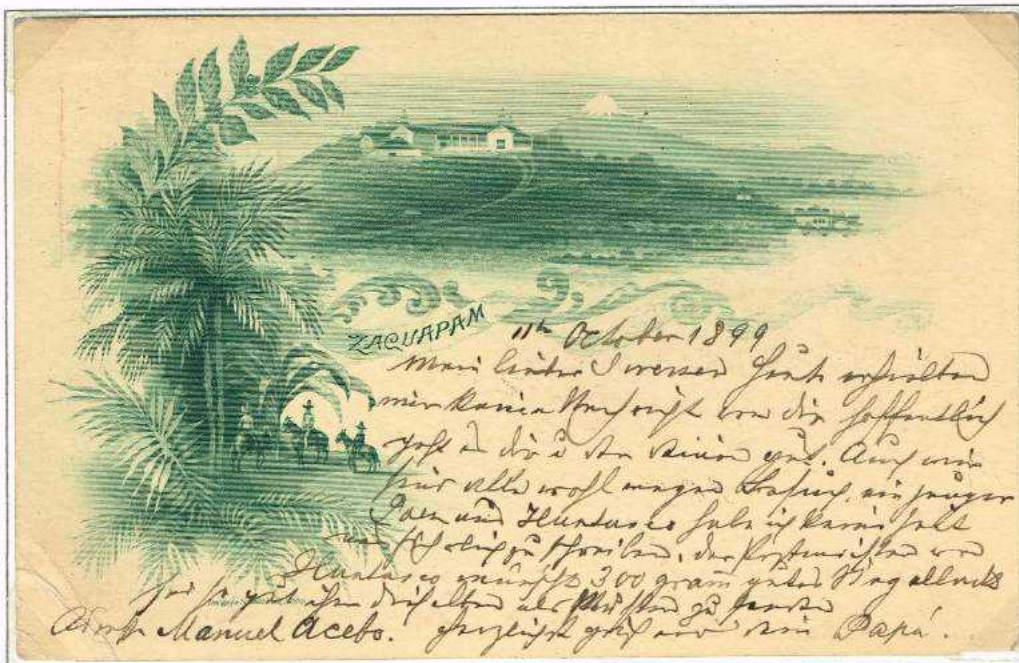 ZACUAPAM
11th October 1899
Mein lieber Iversen Heute erhielten
wir keine Nachricht von dir hoffentlich
geht es dir u den deinen gut. Auch wir
hier alle wohl wegen Besuch, ein junger
und Huatusco habe ich keine Zeit
zu schreiben, der Postmeister von
Huatusco wünscht 300 gram guten Siegellack
sei so gut ihm denselben als Muster zu senden
Manuel Acebo. herzlichst grüßt dein Papá.